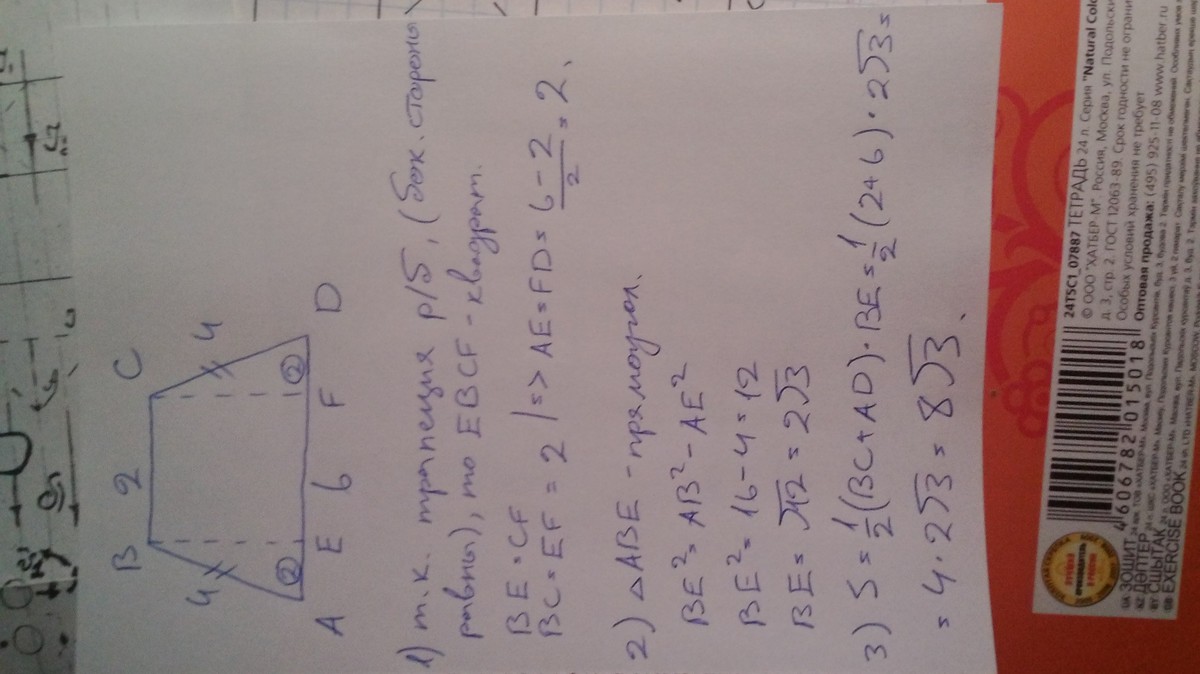 B 2 C
4 4
2 2
A E 6 F D
1) т.к. трапеция р/б, (бок. стороны
равны), то EBCF - квадрат.
BE = CF
BC = EF = 2 | => AE = FD = 6 - 2 / 2 = 2.
2) △ABE - прямоугол.
BE² = AB² - AE²
BE² = 16 - 4 = 12
BE = √12 = 2√3
3) S = 1/2 (BC + AD) · BE = 1/2 (2+6) · 2√3 =
= 4 · 2√3 = 8√3.
24Т5С1_07887 ТЕТРАДЬ 24 л. Серия "Natural Colo
© ООО "ХАТБЕР-М" Россия, Москва, ул. Подольски
д. 3, стр. 2. ГОСТ 12063-89. Срок годности не ограни
Особых условий хранения не требует
Оптовая продажа: (495) 925-11-08 www.hatber.ru
4 606782 015018
UA ЗОШИТ
KZ ДӘПТЕР
BY СШЫТАК
GB EXERCISE BOOK